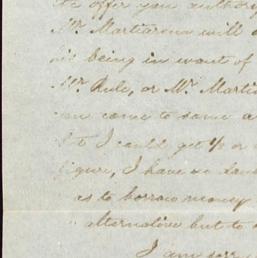 offer you author
Mr. Martiarena will
his being in want of
Mr. Rule, or Mr. Marti
you come to some a
I could get ½ or
figure, I have no
as to borrow money
alternative but to
I am sorry